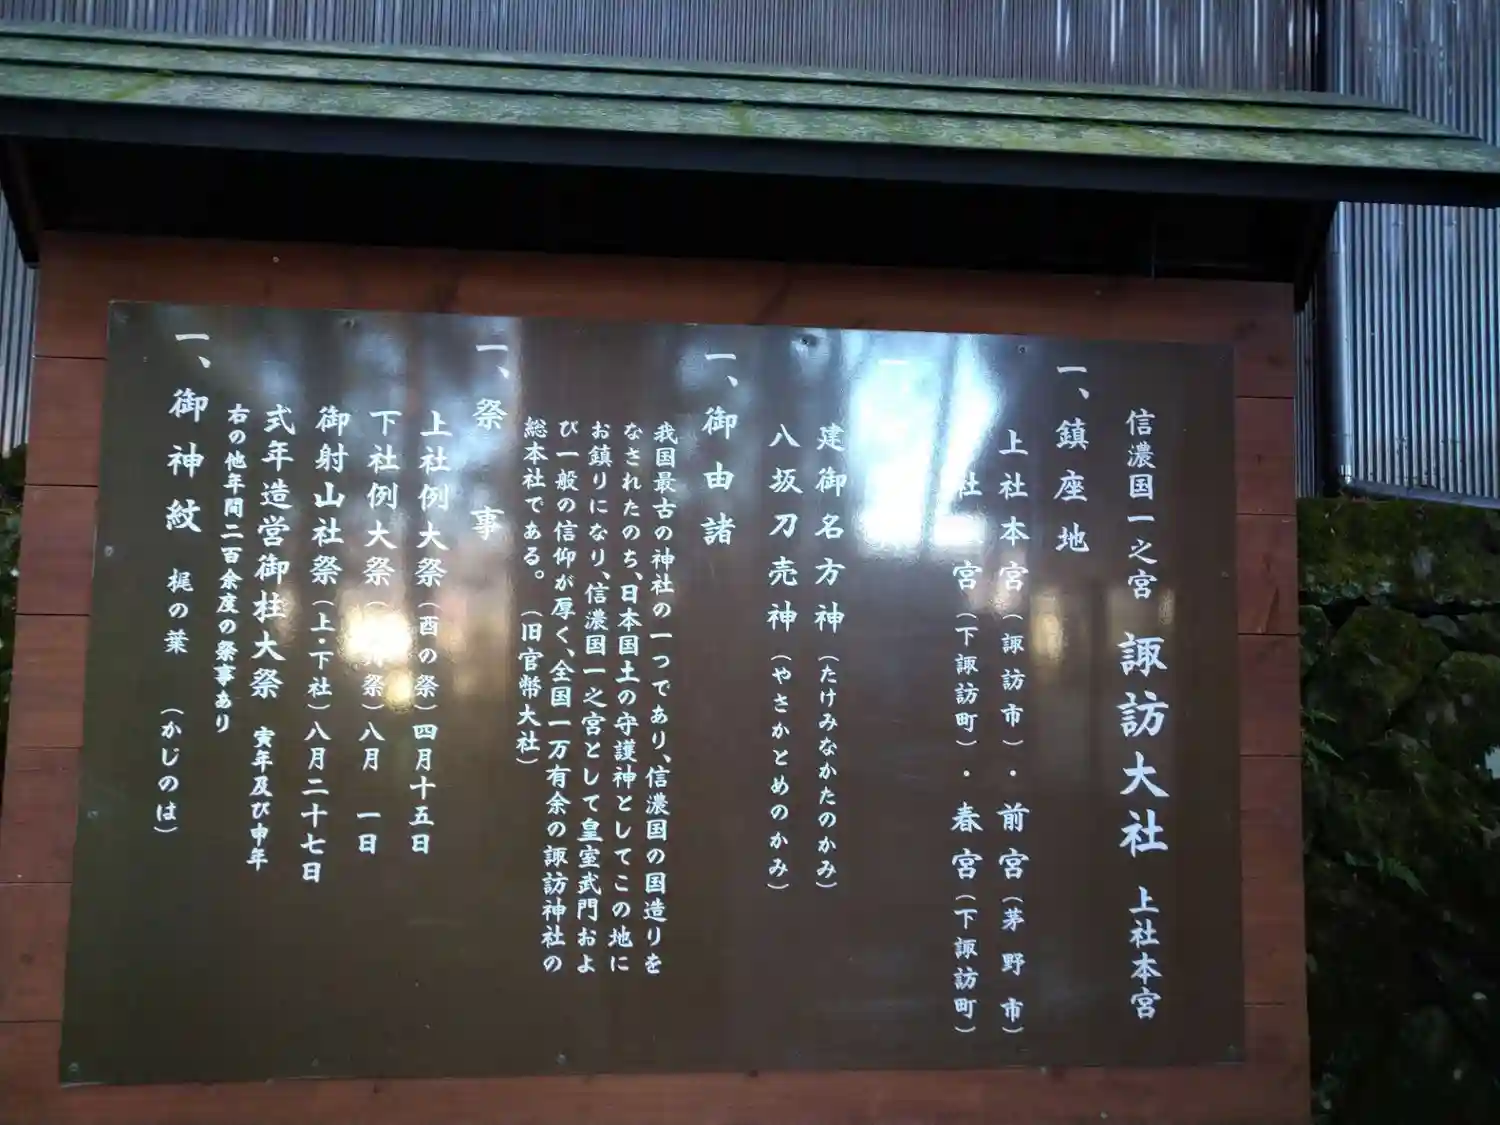 信濃国一之宮 諏訪大社 上社本宮
一、鎮座地
上社本宮(諏訪市)・前宮(茅野市)
社 宮(下諏訪町)・春宮(下諏訪町)
建御名方神(たけみなかたのかみ)
八坂刀売神(やさかとめのかみ)
一、御由諸
我国最古の神社の一つであり、信濃国の国造りを
なされたのち、日本国土の守護神としてこの地に
お鎮りになり、信濃国一之宮として皇室武門およ
び一般の信仰が厚く、全国一万有余の諏訪神社の
総本社である。(旧官幣大社)
一、祭事
上社例大祭(酉の祭)四月十五日
下社例大祭( 祭)八月 一日
御射山社祭(上・下社)八月二十七日
式年造営御柱大祭 寅年及び申年
右の他年間二百余度の祭事あり
一、御神紋 梶の葉 (かじのは)